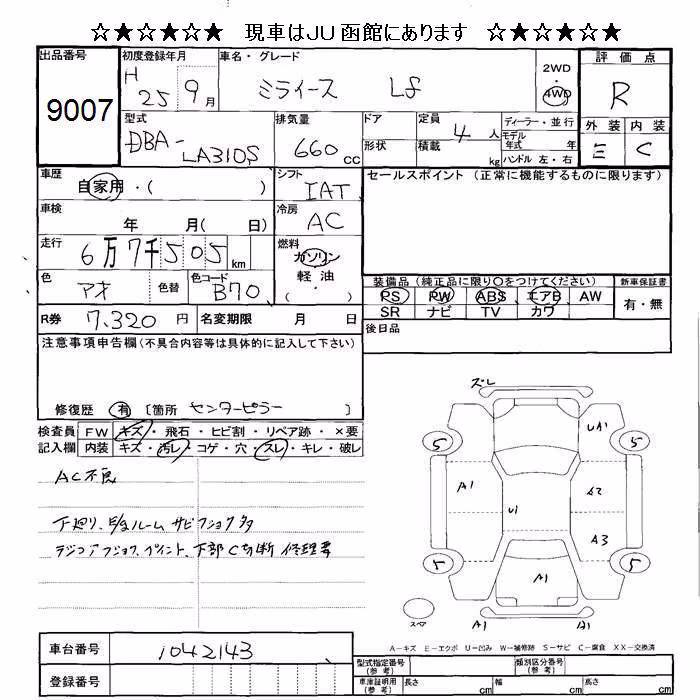 ☆★☆★☆★ 現車はJU函館にあります ☆★☆★☆★
出品番号
9007
初度登録年月
H 25 9月
車名・グレード
ミライース Lf
2WD
4WD
評価点
R
外装 内装
E C
型式
DBA-
LA310S
排気量
660 cc
ドア
形状
定員
4人
積載
kg
ディーラー・並行
モデル
年式 年
ハンドル 左・右
車歴
自家用・( )
シフト
IAT
セールスポイント(正常に機能するものに限ります)
車検
年 月( 日)
冷房
AC
走行
6万7千505 km
燃料
ガソリン
軽油
( ・ )
色
アオ
色替
色コード
B70
装備品(純正品に限り〇をつけてください)
PS PW ABS エアB AW
SR ナビ TV カワ
新車保証書
有・無
R券 7,320 円
名変期限 月 日
後日品
注意事項申告欄(不具合内容等は具体的に記入して下さい)
修復歴 有 [箇所 センターピラー ]
検査員
記入欄
FW キズ・飛石・ヒビ割・リペア跡・×要
内装 キズ・汚レ・コゲ・穴・スレ・キレ・破レ
AC不良
下廻り、E/gルーム サビ フショク多
ラジコアフショク、ペイント、下部C切断 修理要
ズレ
UA1
5 5
A1 A2
U1
A3
5 5
A1
スペア
A1 A1
A−キズ E−エクボ U−凹み W−補修跡 S−サビ C−腐食 XX−交換済
車台番号
1042143
登録番号
型式指定番号
(参考)
類別区分番号
(参考)
車庫証明用
(参考)
長さ cm
幅 cm
高さ cm